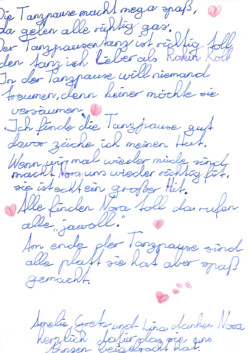 Die Tanzpause macht mega spaß,
da geben alle richtig gas.
Der Tanzpausentanz ist richtig toll
den tanz ich lieber als Rock'n Roll
In der Tanzpause will niemand
träumen, denn keiner möchte sie
versäumen.
Ich finde die Tanzpause gut
davor ziehe ich meinen Hut.
Wenn wir mal wieder müde sind
macht Nora uns wieder richtig fit,
sie ist echt ein großer Hit.
Alle finden Nora toll da rufen
alle "jawoll".
Am ende der Tanzpause sind
alle platt sie hat aber spaß
gemacht.
Amelie Greta und Lina danken Nora
herzlich dafür das sie uns
beigebracht hat.